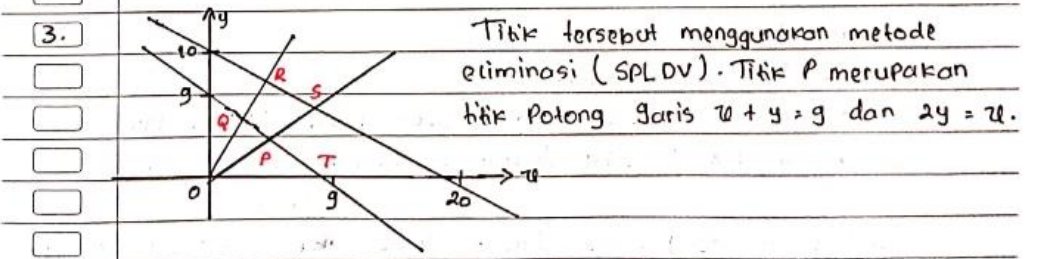 3.
y
10
9
R
S
Q
P
T
0
9
20
x
Titik tersebut menggunakan metode
eliminasi (SPLDV). Titik P merupakan
titik potong garis x + y = 9 dan 2y = x.